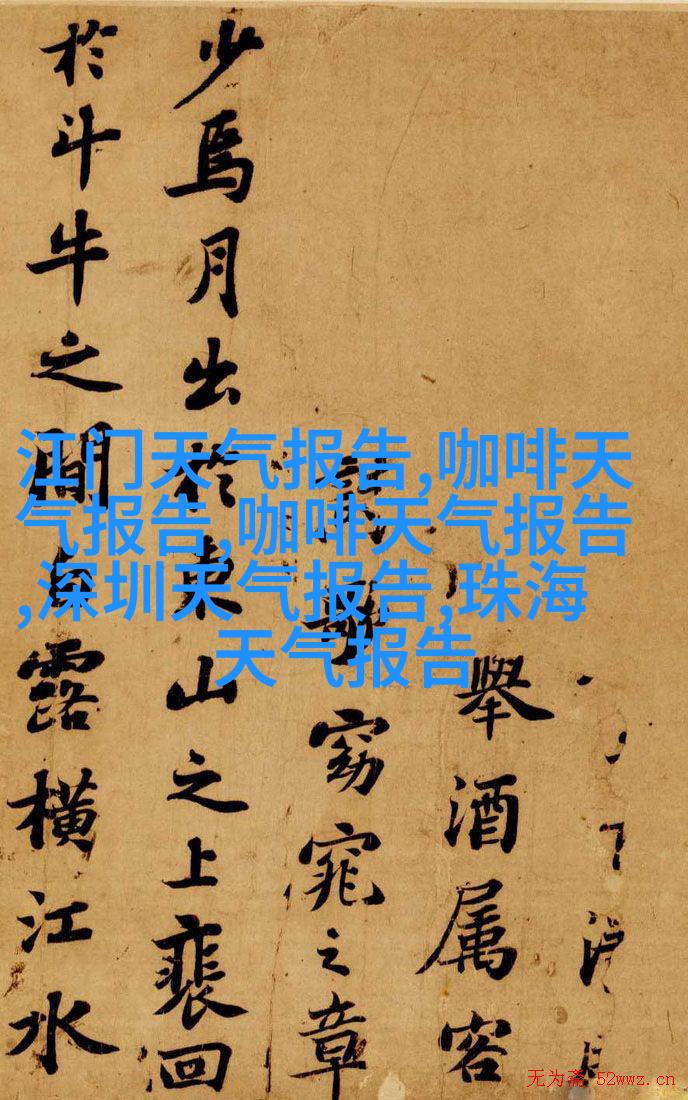 舉酒属客
歌窈窕之章
少焉月出於東山之上裴回
於斗牛之間白露橫江水
江门天气报告,咖啡天
气报告,咖啡天气报告
,深圳天气报告,珠海
天气报告
无为斋 52wwz.cn